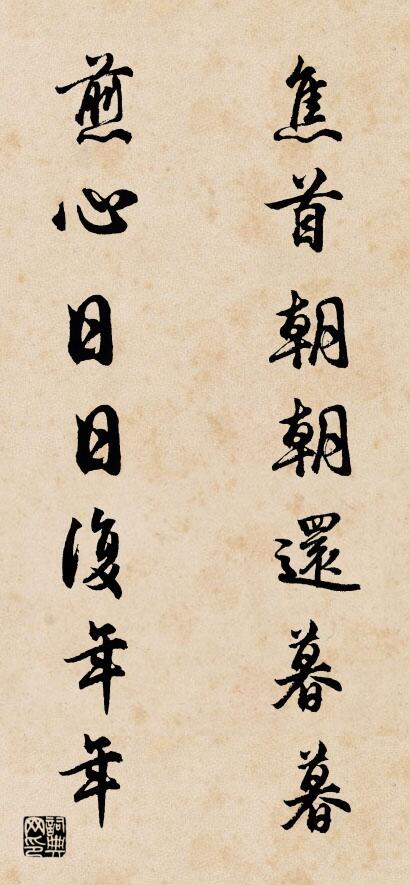 焦首朝朝還暮暮
煎心日日復年年
詞典网印